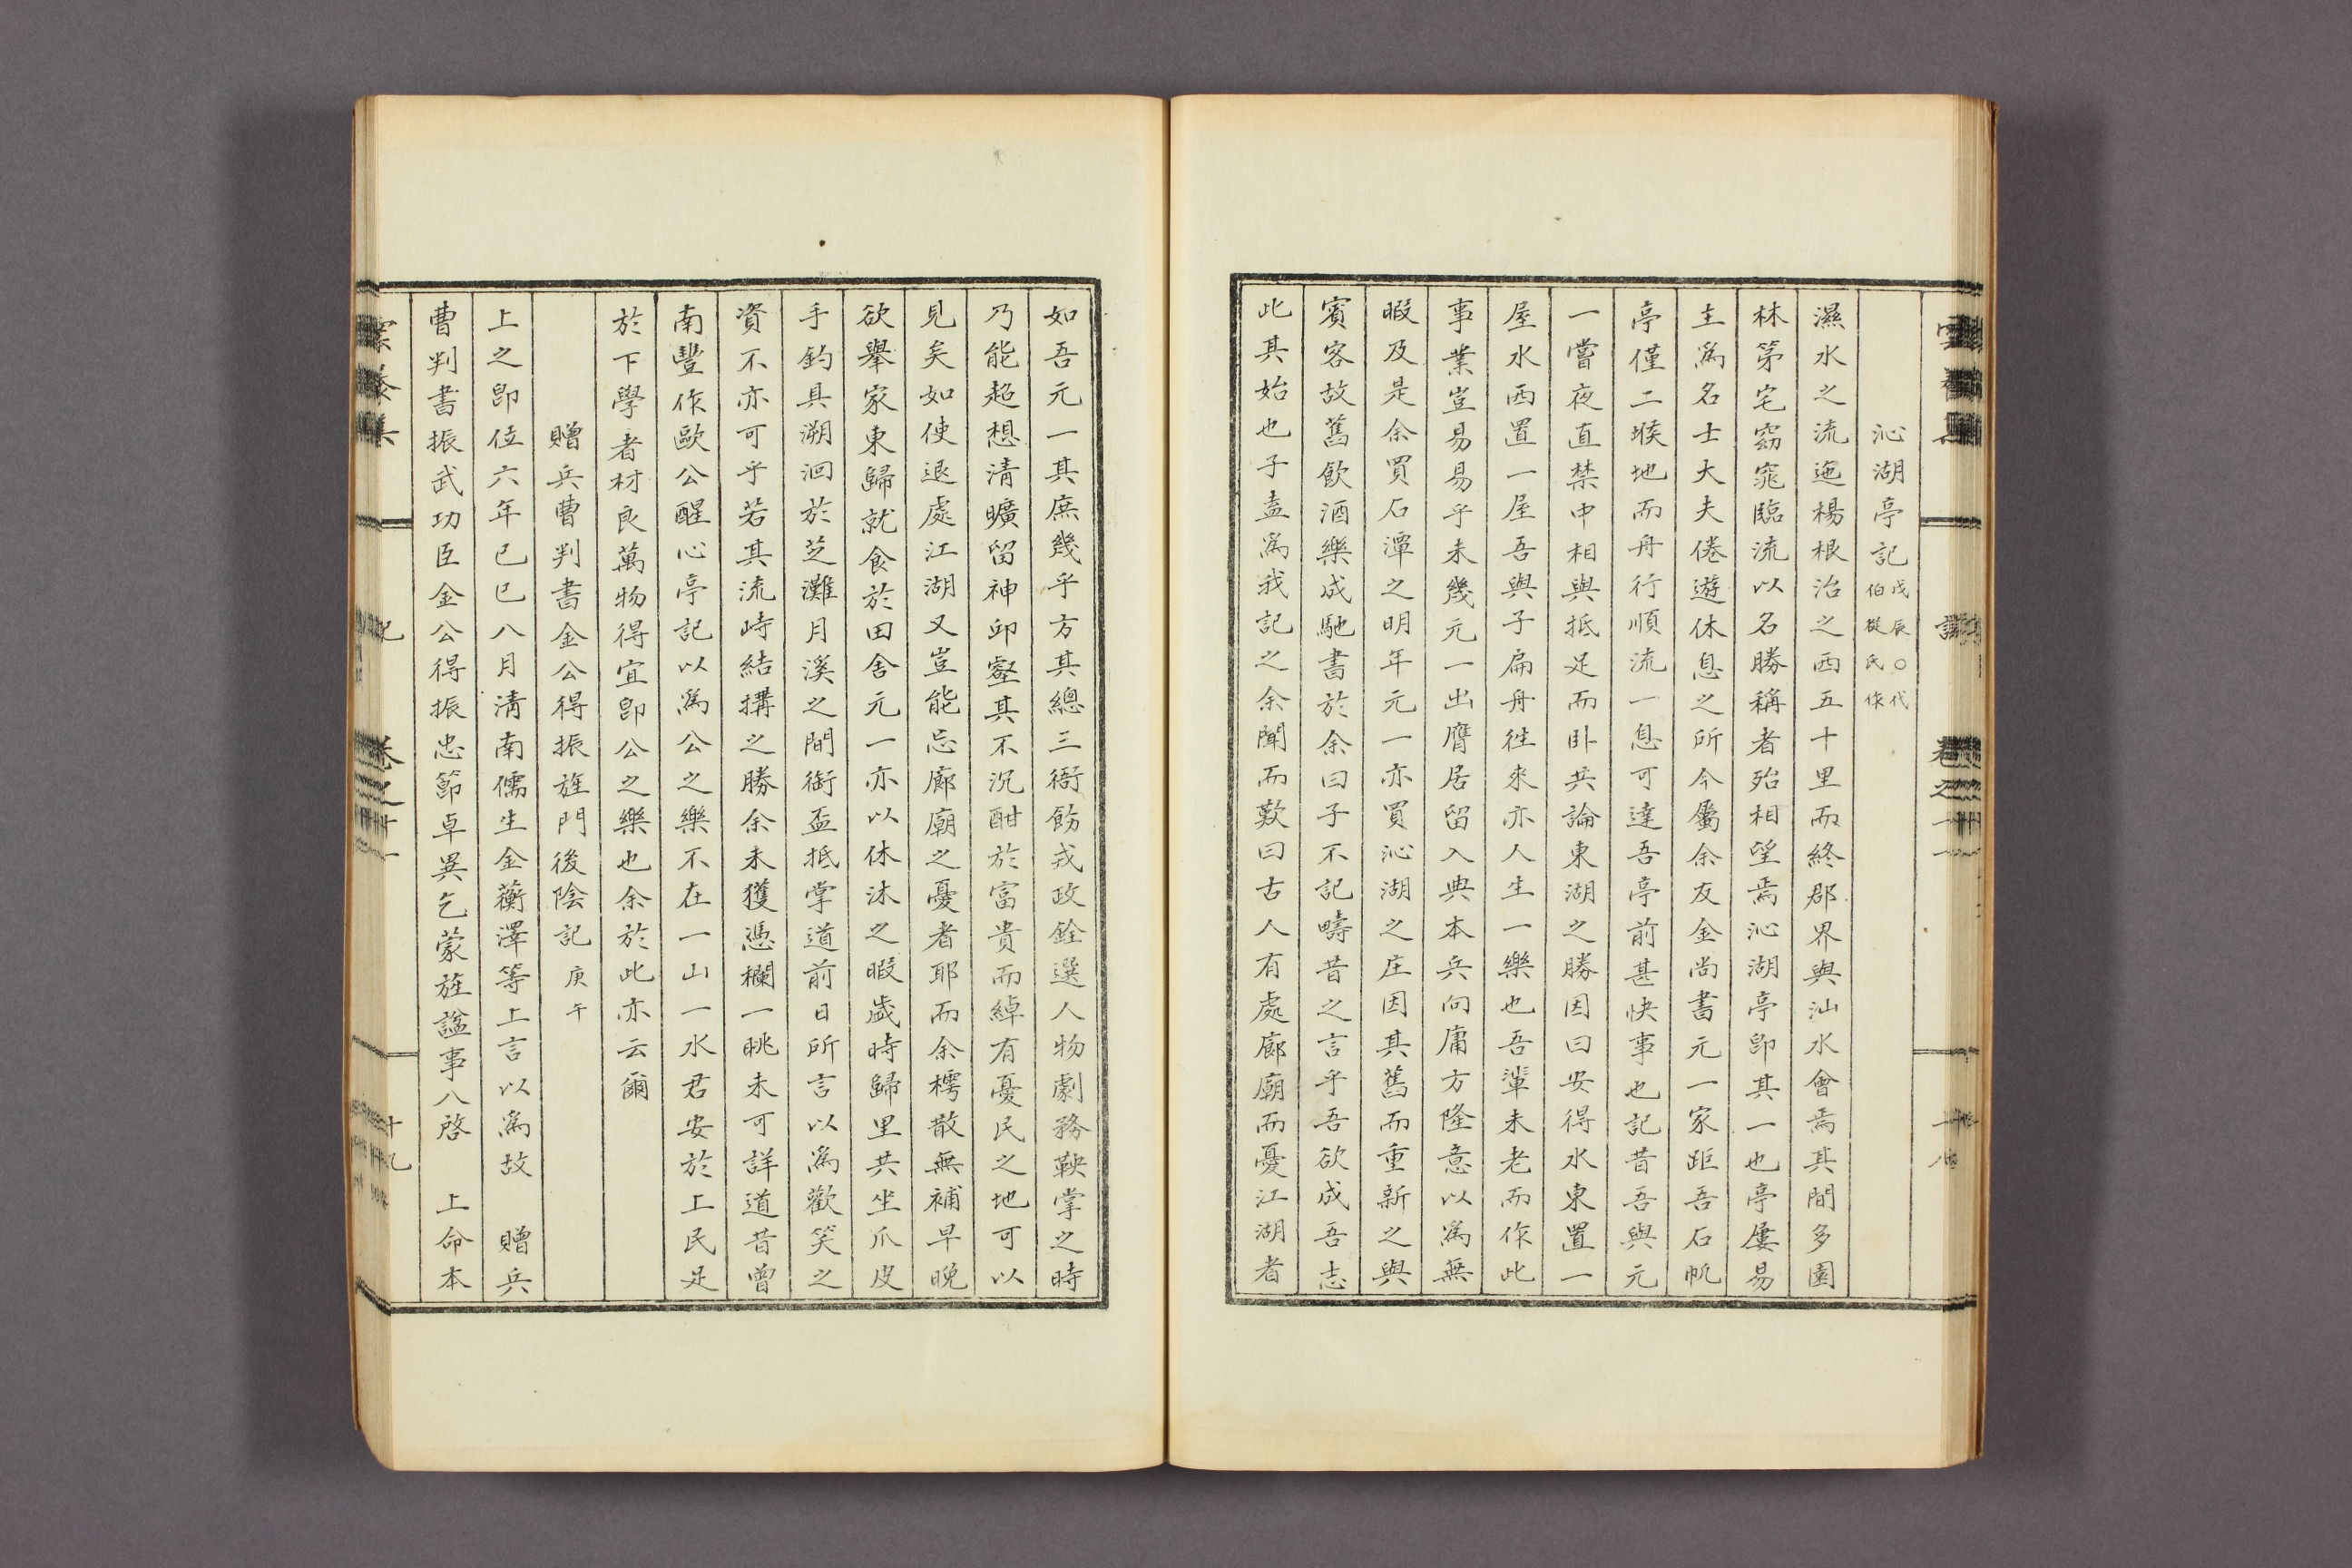 沁湖亭記戊辰○代伯從氏作
濕水之流迤楊根治之西五十里而終郡界與汕水會焉其間多園
林第宅窈窕臨流以名勝稱者殆相望焉沁湖亭卽其一也亭屢易
主爲名士大夫倦遊休息之所今屬余友金尚書元一家距吾石帆
亭僅二堠地而舟行順流一息可達吾亭前甚快事也記昔吾與元
一嘗夜直禁中相與抵足而卧共論東湖之勝因曰安得水東置一
屋水西置一屋吾與子扁舟徃來亦人生一樂也吾輩未老而作此
事業豈易易乎未幾元一出膺居留入典本兵向庸方隆意以爲無
暇及是余買石潭之明年元一亦買沁湖之庄因其舊而重新之與
賓客故舊飮酒樂成馳書於余曰子不記疇昔之言乎吾欲成吾志
此其始也子盍爲我記之余聞而歎曰古人有處廊廟而憂江湖者
如吾元一其庶幾乎方其總三衙飭戎政銓選人物劇務鞅掌之時
乃能超想清曠留神邱壑其不沉酣於富貴而綽有憂民之地可以
見矣如使退處江湖又豈能忘廊廟之憂者耶而余樗散無補早晩
欲擧家東歸就食於田舍元一亦以休沐之暇歲時歸里共坐爪皮
手釣具溯洄於芝灘月溪之間銜盃抵掌道前日所言以爲歡笑之
資不亦可乎若其流峙結搆之勝余未獲憑欄一眺未可詳道昔曾
南豐作歐公醒心亭記以爲公之樂不在一山一水君安於上民足
於下學者材良萬物得宜卽公之樂也余於此亦云爾
贈兵曹判書金公得振旌門後陰記庚午
上之卽位六年己巳八月淸南儒生金蘅澤等上言以爲故 贈兵
曹判書振武功臣金公得振忠節卓異乞蒙旌諡事入啓 上命本